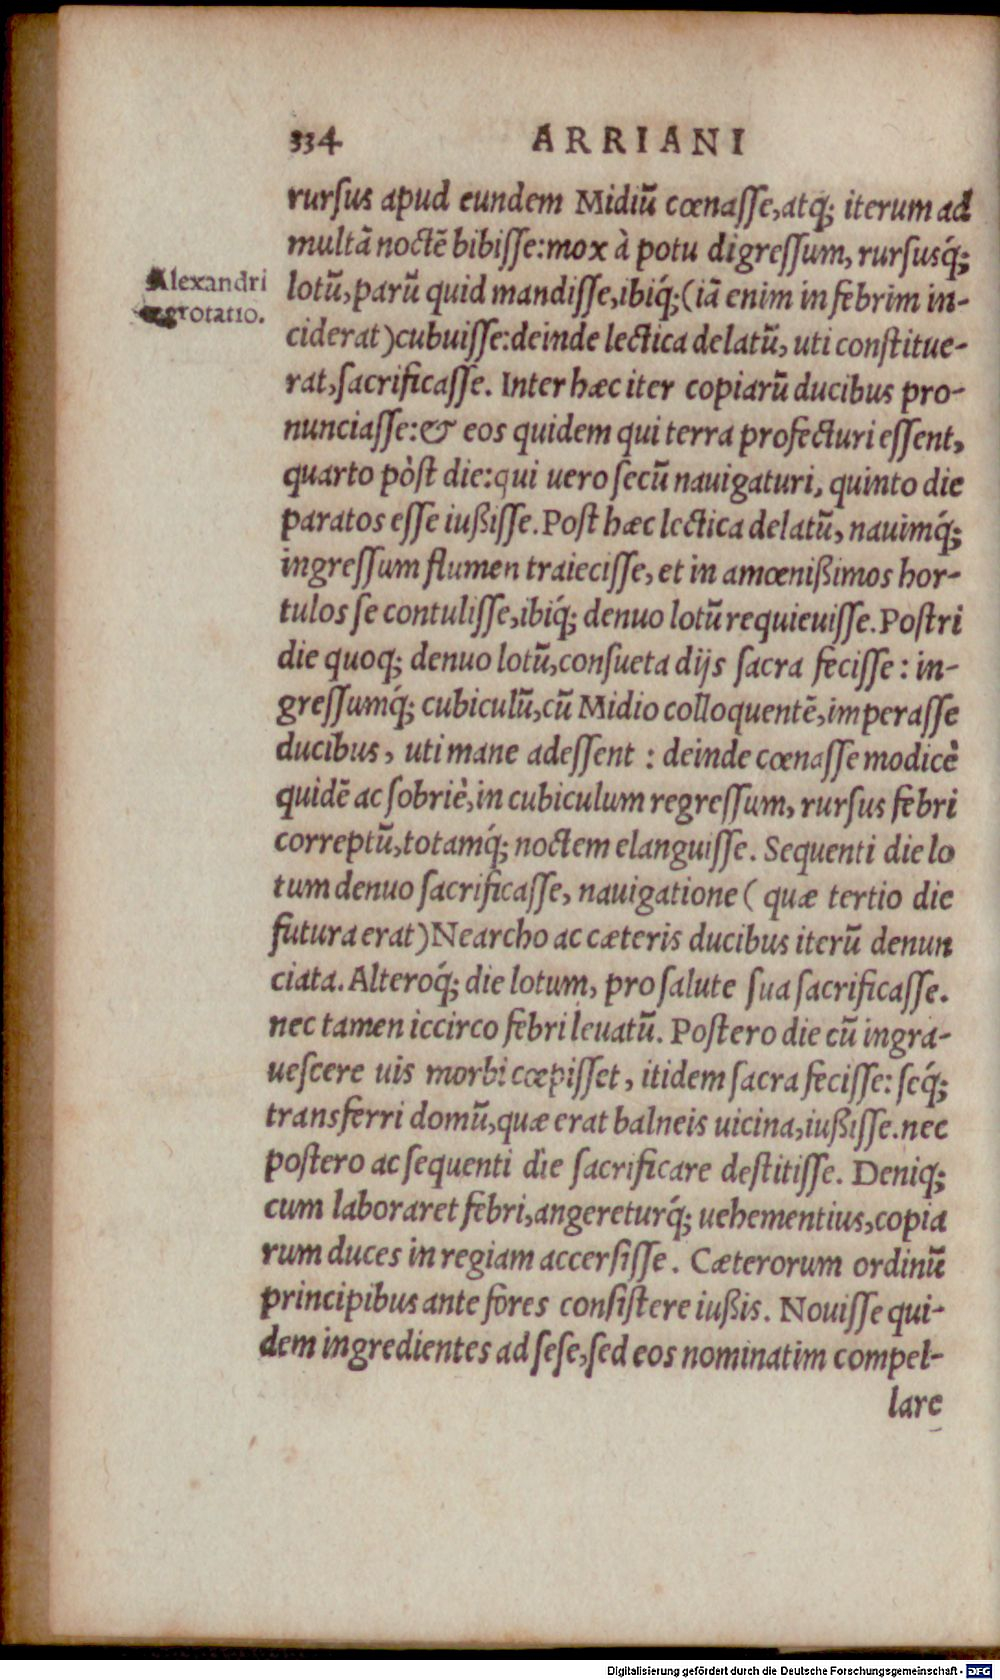 334 ARRIANI
rursus apud eundem Midiũ cœnasse, atq; iterum ad
multã noctẽ bibisse: mox à potu digressum, rursusq́;
Alexandri
ægrotatio.
lotũ, parũ quid mandisse, ibiq́; (iã enim in febrim in-
ciderat) cubuisse: deinde lectica delatũ, uti constitue-
rat, sacrificasse. Inter hæc iter copiarũ ducibus pro-
nunciasse: & eos quidem qui terra profecturi essent,
quarto pòst die: qui uero secũ nauigaturi, quinto die
paratos esse iußisse. Post hæc lectica delatũ, nauimq́;
ingressum flumen traiecisse, et in amœnißimos hor-
tulos se contulisse, ibiq́; denuo lotũ requieuisse. Postri
die quoq; denuo lotũ, consueta dijs sacra fecisse: in-
gressumq́; cubiculũ, cũ Midio colloquentẽ, imperasse
ducibus, uti mane adessent: deinde cœnasse modicè
quidẽ ac sobriè, in cubiculum regressum, rursus febri
correptũ, totamq́; noctem elanguisse. Sequenti die lo
tum denuo sacrificasse, nauigatione (quæ tertio die
futura erat) Nearcho ac cæteris ducibus iterũ denun
ciata. Alteroq́; die lotum, pro salute sua sacrificasse.
nec tamen iccirco febri leuatũ. Postero die cũ ingra-
uescere uis morbi cœpisset, itidem sacra fecisse: seq́;
transferri domũ, quæ erat balneis uicina, iußisse. nec
postero ac sequenti die sacrificare destitisse. Deniq;
cum laboraret febri, angereturq́; uehementius, copia
rum duces in regiam accersisse. Cæterorum ordinũ
principibus ante fores consistere iußis. Nouisse qui-
dem ingredientes ad sese, sed eos nominatim compel-
lare
Digitalisierung gefördert durch die Deutsche Forschungsgemeinschaft - DFG